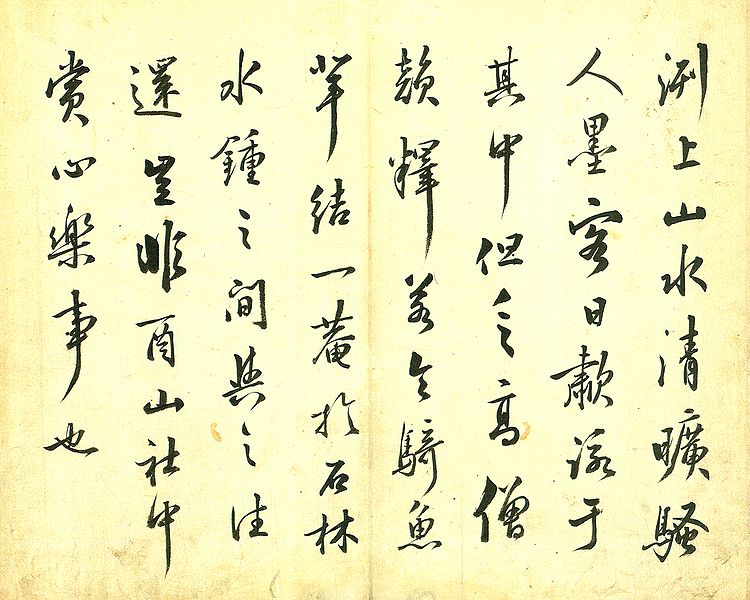 上山水清曠騷
人墨客日歗詠于
其中但乏高僧
韻釋若今騎魚
輩結一菴於石林
水鍾之間與之往
還豈非酉山社中
賞心樂事也